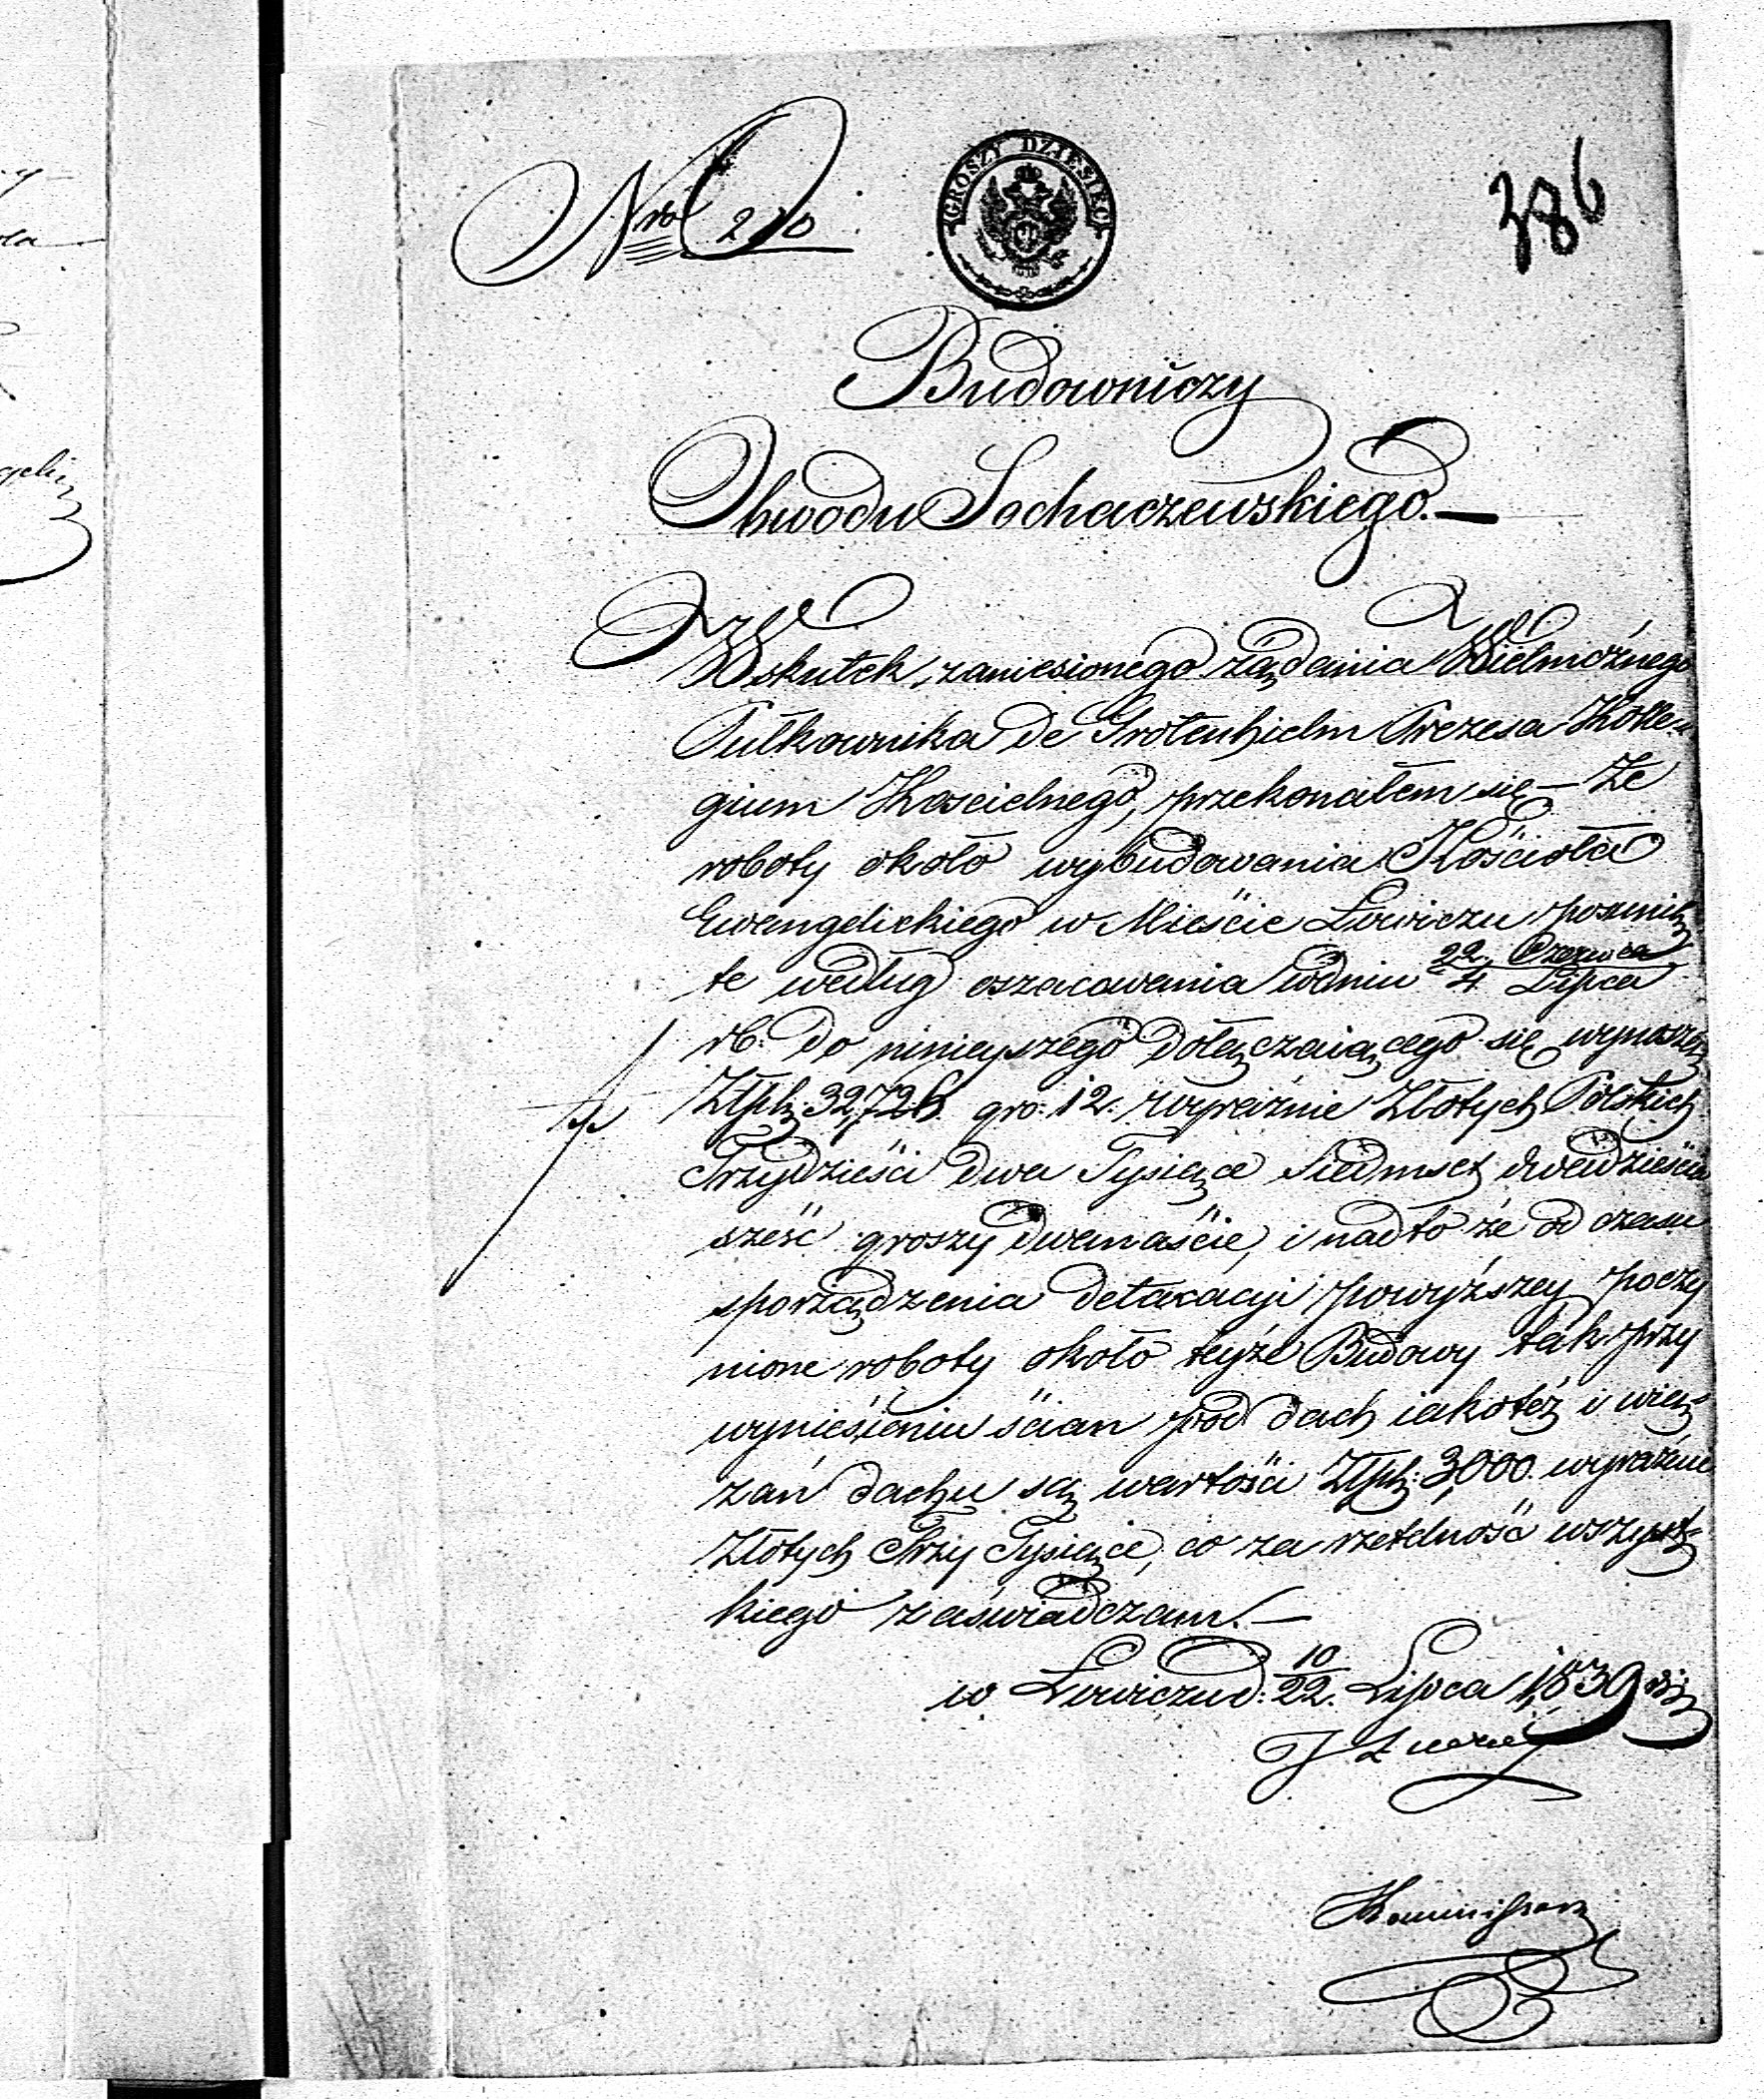 Nro 210
GROSZY DZIESIĘĆ
386
Budowniczy
Obwodu Sochaczewskiego.—
W skutek zaniesionego rządania Wielmożnego
Pułkownika de Grotenhielm Prezesa Kolle-
gium Koscielnego, przekonałem się — Ze
roboty około wybudowania Kościoła
Ewangelickiego w Mieście Łowiczu posunię
te według oszacowania w dniu 22 Czerwca / 4 Lipca
rb: do ninieyszego dołączaiącego się wynoszą
Złpl: 32,726. gro: 12. wyraźnie Złotych Polskich
Trzydzieści dwa Tysiące Siedmset dwadzieścia
sześć groszy dwanaście, i nadto że od czasu
sporządzenia detaxacyi powyższey poczy
nione roboty około teyże Budowy tak przy
wyniesieniu ścian pod dach iakoteż i wią-
zań dachu są wartości Złpl: 3,000. wyraźnie
Złotych Trzy Tysiące, co za rzetelność wszyst-
kiego zaświadczam.—
w Łowiczu d: 10/22. Lipca 1839
J
Kommissarz